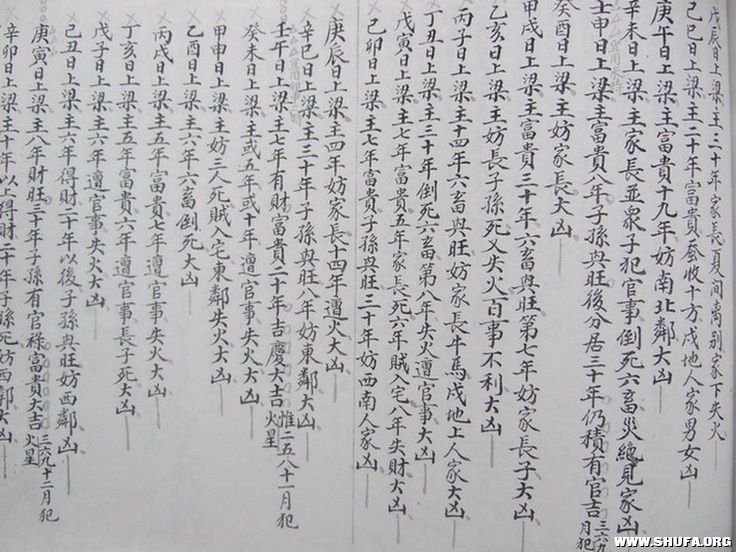 戊辰日上梁主二十年家長夏間离别家下失火
己巳日上梁主二十年富貴蚕收十方戌地人家男女凶
庚午日上梁主富貴十九年妨南北鄰大凶
辛未日上梁主家長並衆子犯官事倒死六畜災絶見家凶
壬申日上梁主富貴八年子孫與旺後分居三十年仍積有官吉 三六九 月犯
癸酉日上梁主妨家長大凶
甲戌日上梁主富貴三十年六畜與旺第七年妨家長子大凶
乙亥日上梁主妨長子孫死又失火百事不利大凶
丙子日上梁主十四年六畜與旺妨家長牛馬戌地上人家大凶
丁丑日上梁主三十年倒死六畜第八年失火遭官事大凶
戊寅日上梁主七年富貴五年家長死六年賊入宅八年失財大凶
己卯日上梁主七年富貴子孫與旺三十年妨西南人家凶
庚辰日上梁主四年妨家長十四年遭火大凶
辛巳日上梁主三十年子孫與旺八年妨東鄰大凶
壬午日上梁主七年有財富貴二十年吉慶大吉 惟二五八十一月犯火星
癸未日上梁主或五年或十年遭官事失火大凶
甲申日上梁主妨三人死賊入宅東鄰失火大凶
乙酉日上梁主六年六畜倒死大凶
丙戌日上梁主五年富貴七年遭官事失火大凶
丁亥日上梁主五年富貴六年遭官事長子死大凶
戊子日上梁主六年遭官事失火大凶
己丑日上梁主六年得財二十年以後子孫與旺妨西鄰凶
庚寅日上梁主八年財旺三十年子孫有官祿富貴大吉 三六九十二月犯火星
辛卯日上梁主十年以上得財二十年子孫死妨西鄰大凶
WWW.SHUFA.ORG